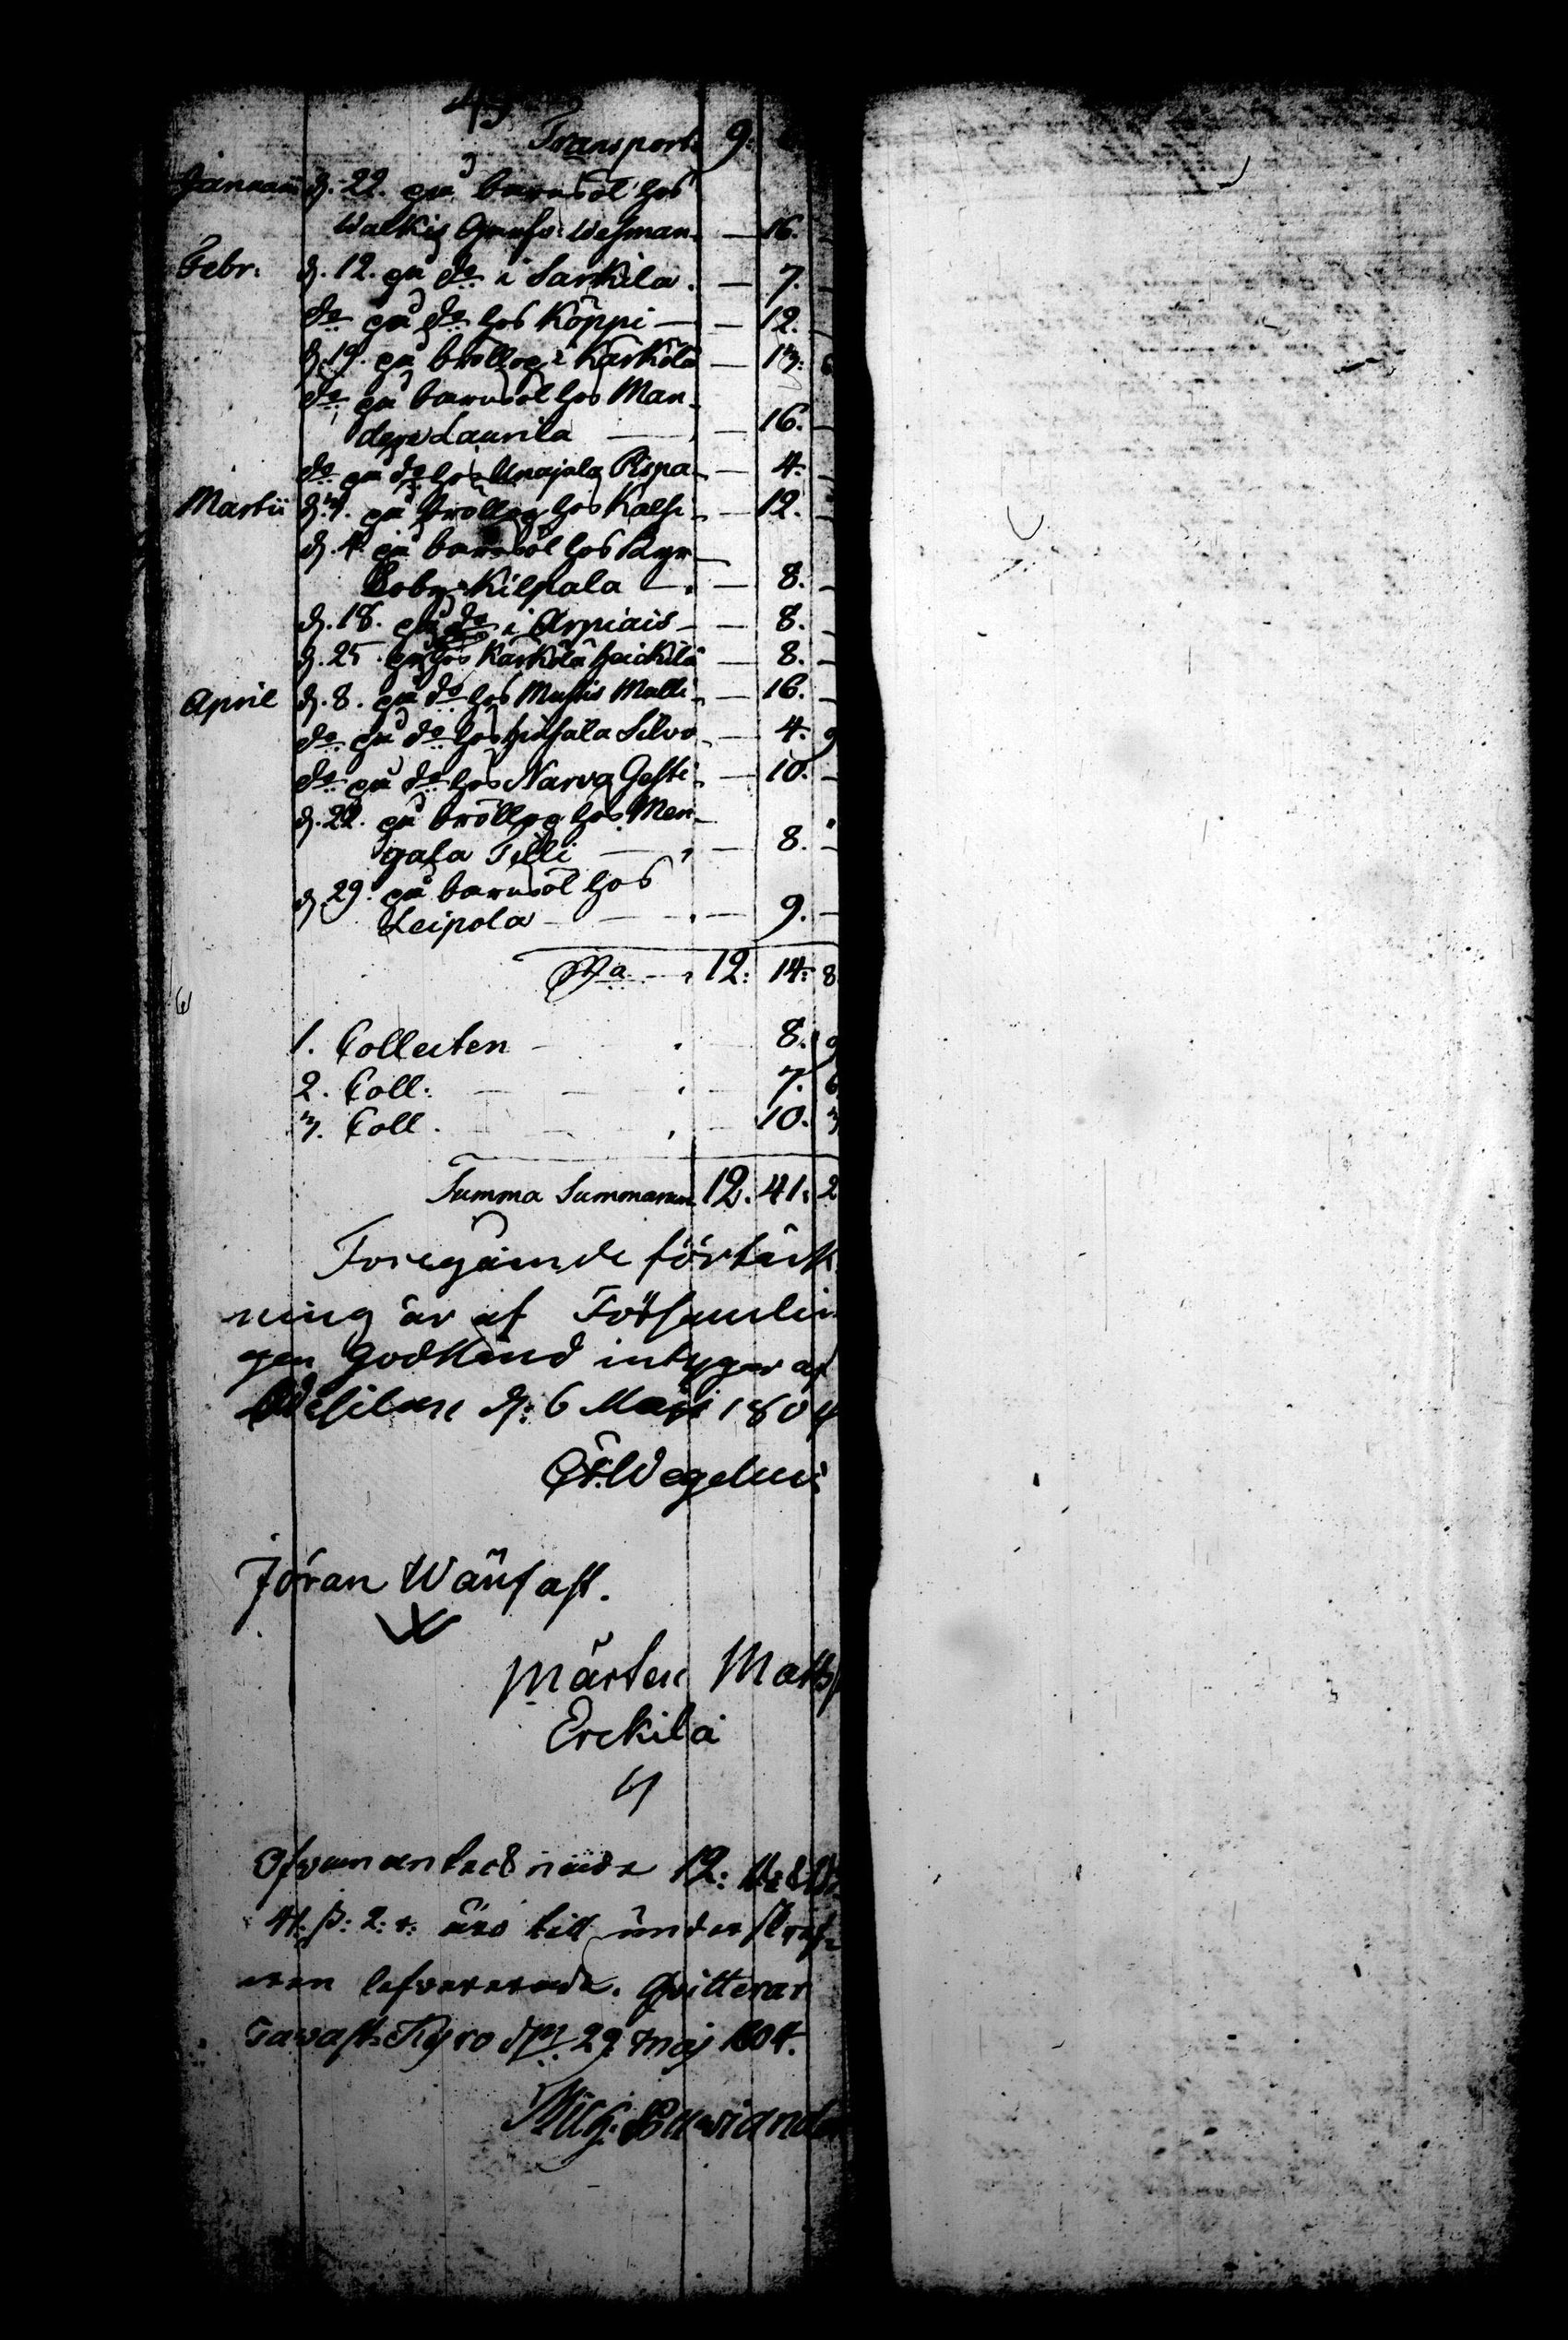 Transport 9:
Januarii d. 22. på barnsöl hos
Walkis Wesman — 16. —
Febr. d. 12. på do i Sarkila. — 7. —
do på do hos Köppi — — 12. —
d. 19. på bröllop i Karkola — 13: 6
do på barnsöl hos Man-
derä Laurila — — 16. —
do på do hos Unajala Pispa — 4. —
Martii d. 3. på bröllop hos Kalsi — 12. —
d. 4. på barnsöl hos Kyr-
koby Kilpala — — 8. —
d. 18. på do i Arpiais — — 8. —
d. 25. på hos Karkola Heickilä — 8. —
April d. 8. på do hos Mustis Malli — 16. —
do på do hos Huhtala Silvo — 4. 9
do på do hos Narva Gesti — 10. —
d. 22. på bröllop hos Men-
gala Tilli — — 8. —
d. 29. på barnsöl hos
Leipola — — 9. —
Sma — 12: 14: 8
1. Collecten — — 8. 9
2. Coll. — — 7. 6
3. Coll. — — 10. 3
Summa Summarum 12. 41: 2
Foregående förteck
ning är af Församlin
gen godkänd intygar af
Wesilax d: 6 Maji 1804
Wegelius
Jöran Wänfast.
W
Mårten Matts
Erckilä
Ofvanantecknade 12:
41. ß: 2: r: äro till underskref-
eren lefvererade. Qvitterar
Tavast Kyro d. 29 Maj 1804.
Mich.